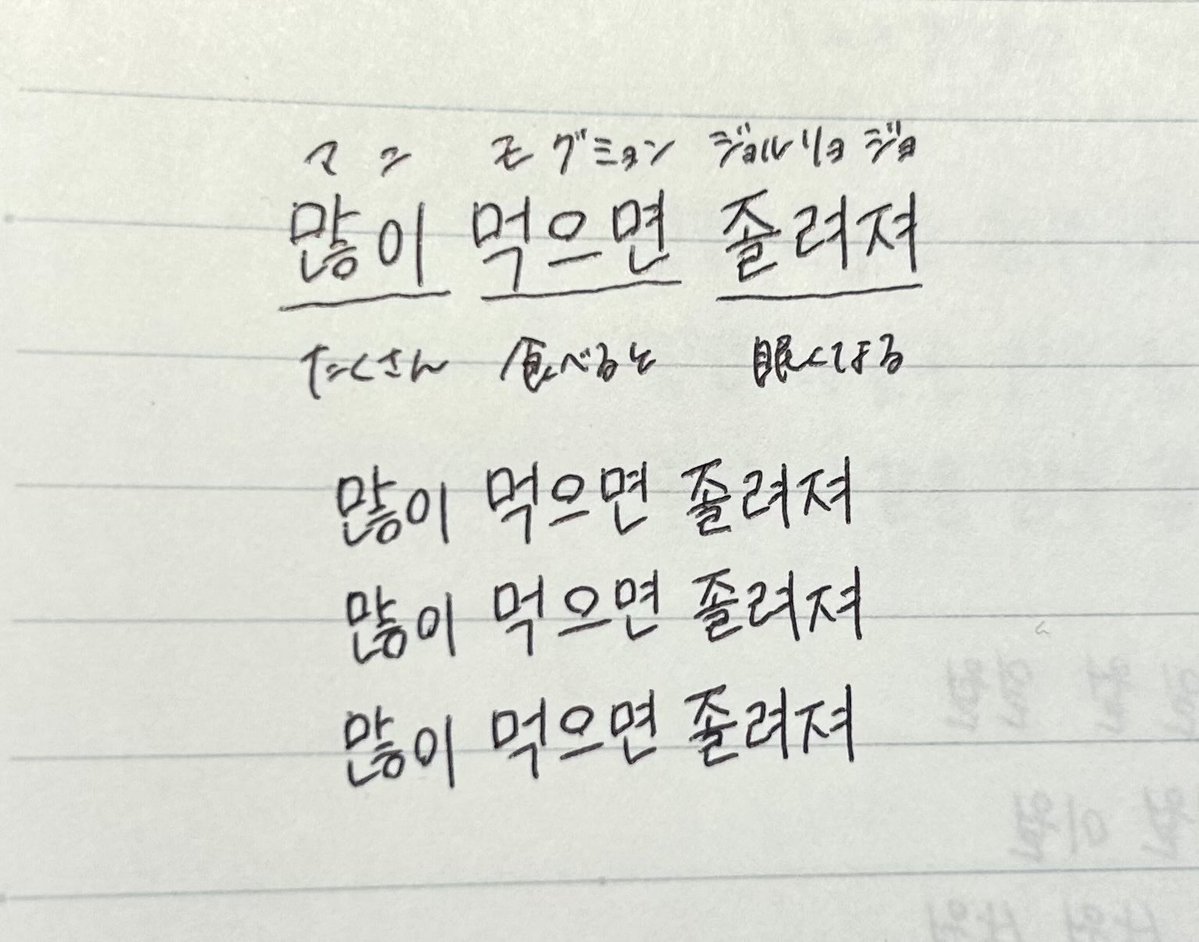 マニ モグミョン ジョルリョジョ
많이 먹으면 졸려져
たくさん 食べると 眠くなる
많이 먹으면 졸려져
많이 먹으면 졸려져
많이 먹으면 졸려져